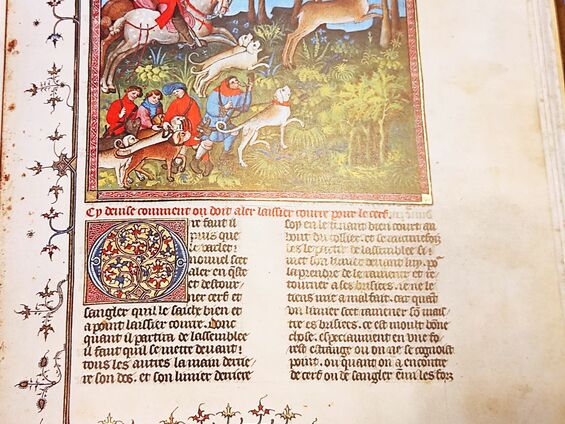 Cy deuise comment on doit aler laissier courre pour le cerf.
re faut il
puis que
le varlet
nouuel scet
aler en q̃ste
et destour
ner cerf et
sanglier quil le sache bien et
a point laissier courre. Donc
quant il partira de lassemblee
il faut quil se mette deuant
tous les autres la main derrie
re son dos. et son limier derriere
soy en le tenant bien court au
bout du collier. et se
le partir de lassemblee
son limier deuant luy.
la prendre de le ramener et re
tourner a ses brisiees. ie ne le
tiens mie a mal fait. car quant
un limier scet ramener so mais
tre es brisiees. ce est moult bõne
chose. especiaument en une fo
rest estrange ou on ne se cognoist
point. ou quant on a encontre
de cerf ou de sanglier emi les forz